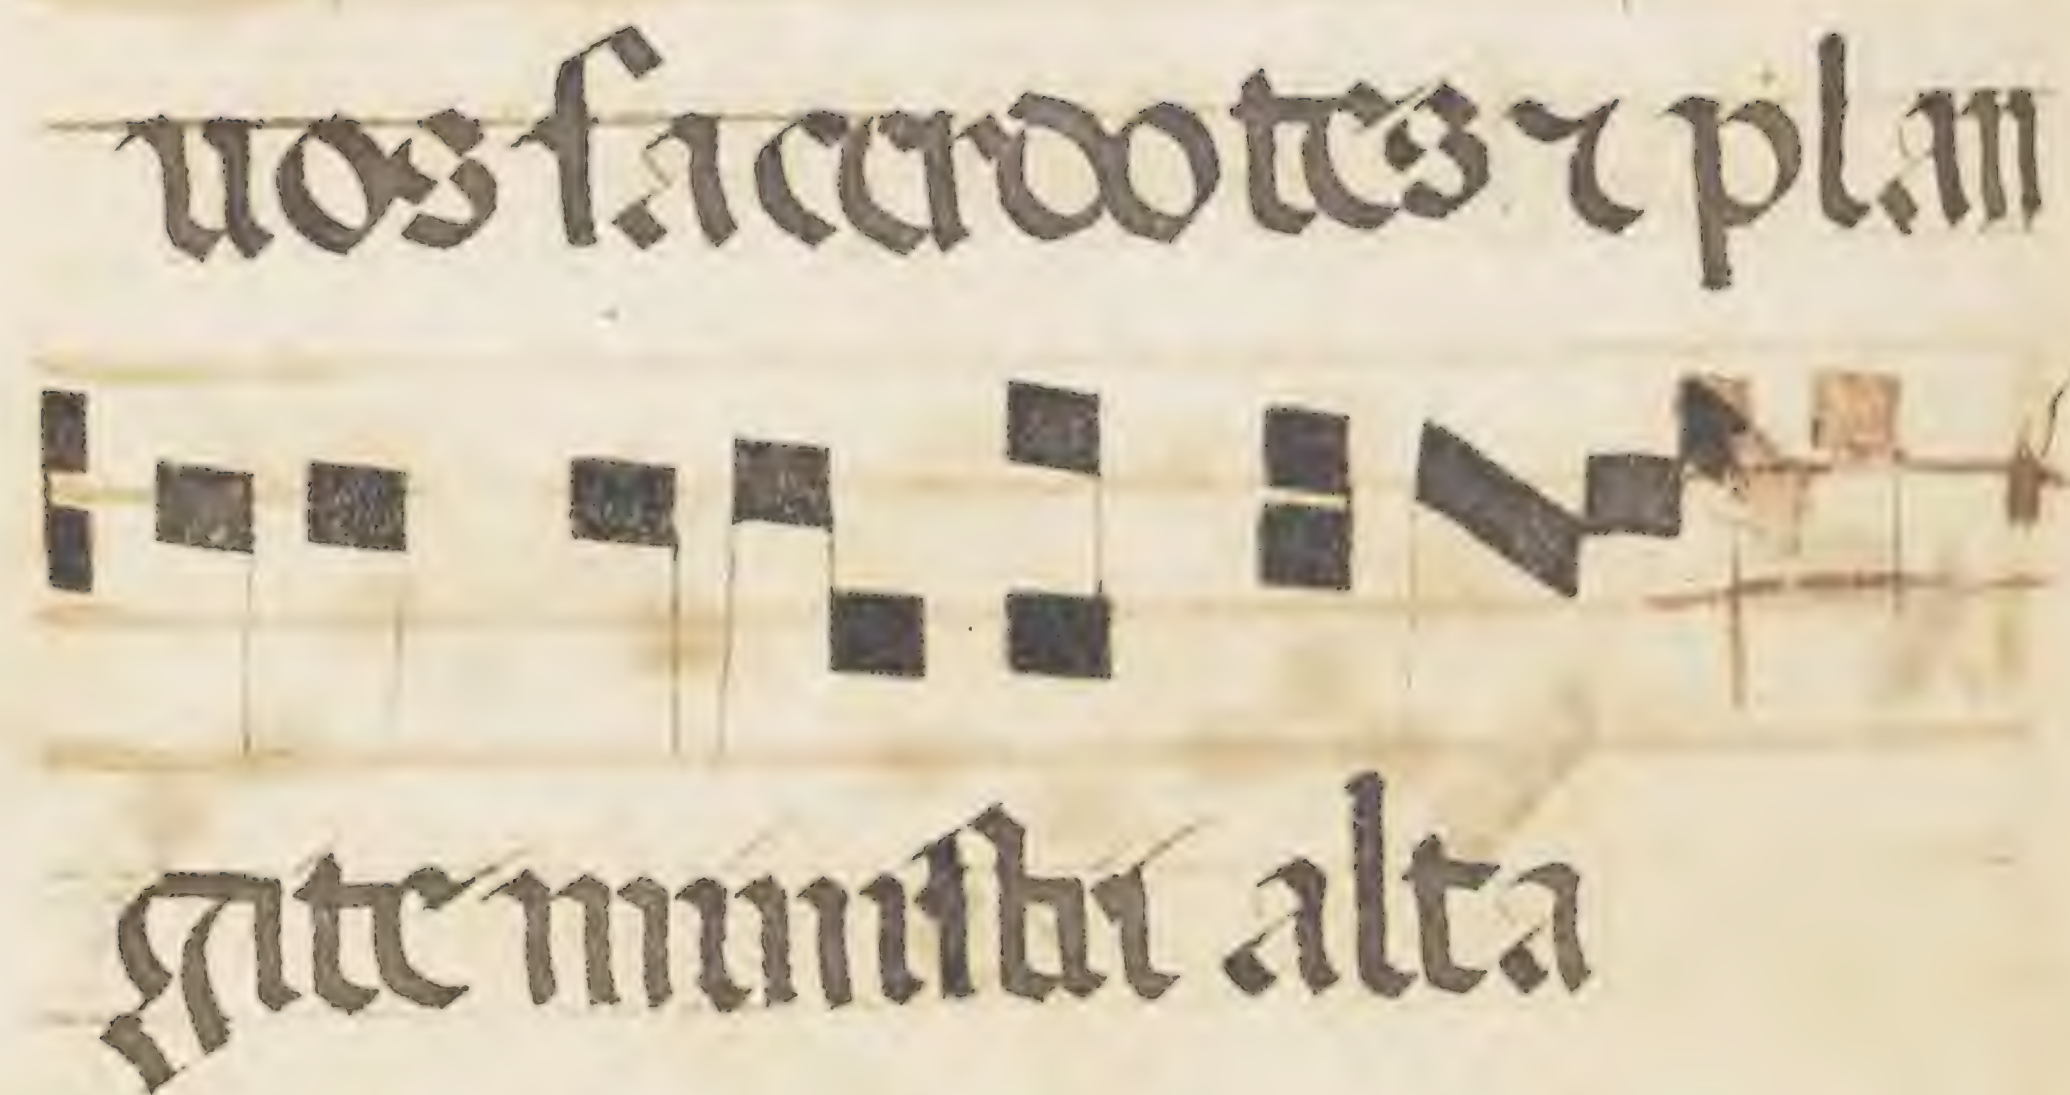 uos sacerdotes ⁊ plan
gite ministri alta